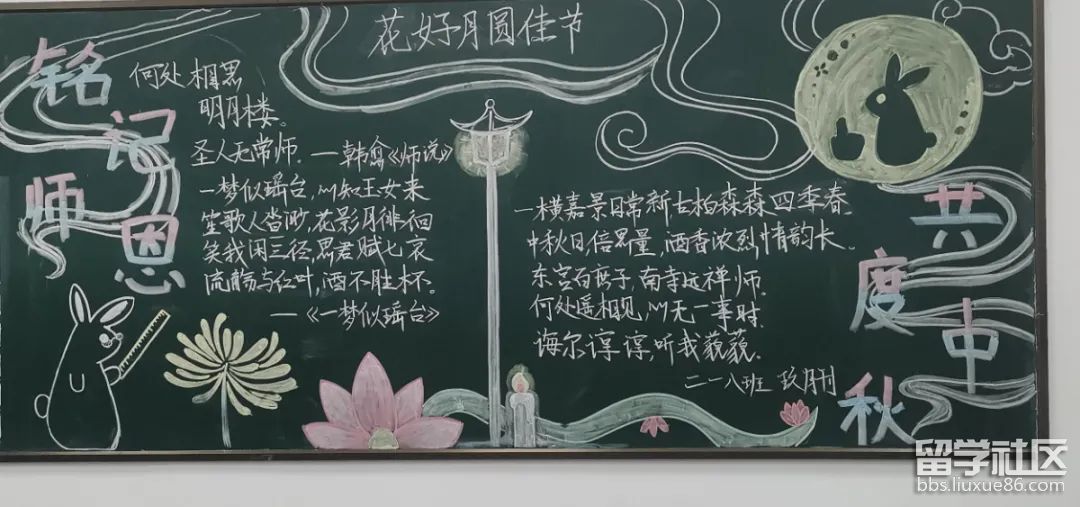 花好月圆佳节
铭记师恩
何处相思
明月楼。
圣人无常师.—韩愈《师说》
一梦似瑶台,似知王女来
笙歌人尚吵,花影月徘徊
笑我闲三径,思君赋七哀
流觞与红叶,酒不胜杯。
—《一梦似瑶台》
一横嘉景日常新古柏森森四季春.
中秋日倍思量,酒香浓烈情韵长.
东宫百庶子,南寺远禅师.
何处遥相见,似无一事时.
诲尔谆谆,听我藐藐.
二一八班 玖月刊
共度中秋
留学社区
bbs.liuxue86.com